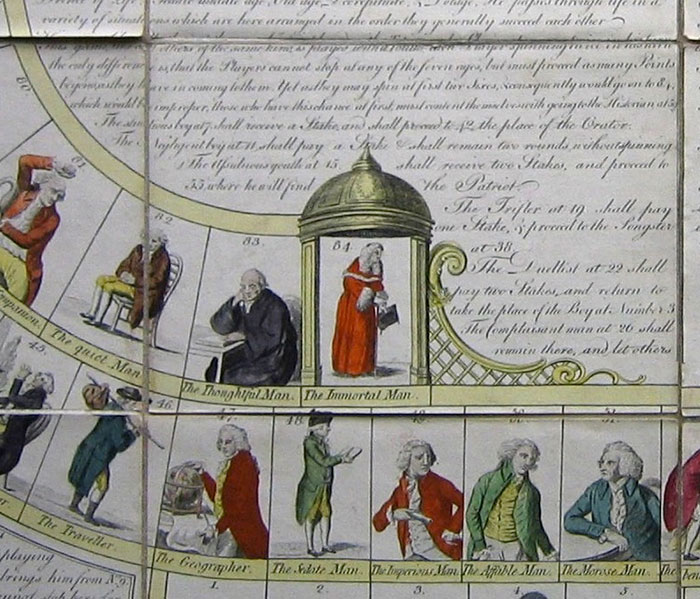 variety of situations which are here arranged in the order they generally succeed each other
the only difference is, that the Players cannot stop at any of the seven ages, but must proceed as many Points
beyond, as they have in coming to them. Yet as they may spin at first two Sixes, & consequently would go on to 84,
which would be improper, those who have this chance at first, must content themselves with going to the Historian at 39
The studious boy at 7 shall receive a Stake, and shall proceed to 42 the place of the Orator.
The Negligent boy at 11, shall pay a Stake & shall remain two rounds without spinning
The Assiduous youth at 15, shall receive two Stakes, and proceed to
55, where he will find the Patriot
The Trifler at 19 shall pay
one Stake, & proceed to the Songster
at 38.
The Duellist at 22 shall
pay two Stakes, and return to
take the place of the Boy at Number 3
The Complaisant man at 26 shall
remain there, and let others
80.
81.
82
83.
84.
The quiet Man
The Thoughtful Man.
The Immortal Man.
45.
46.
47.
48.
49.
50.
51.
The Traveller.
The Geographer.
The Sedate Man.
The Imperious Man.
The Affable Man.
The Morose Man.
The
playing
brings him from No. 9.
1.
2.
3.
4.
5.